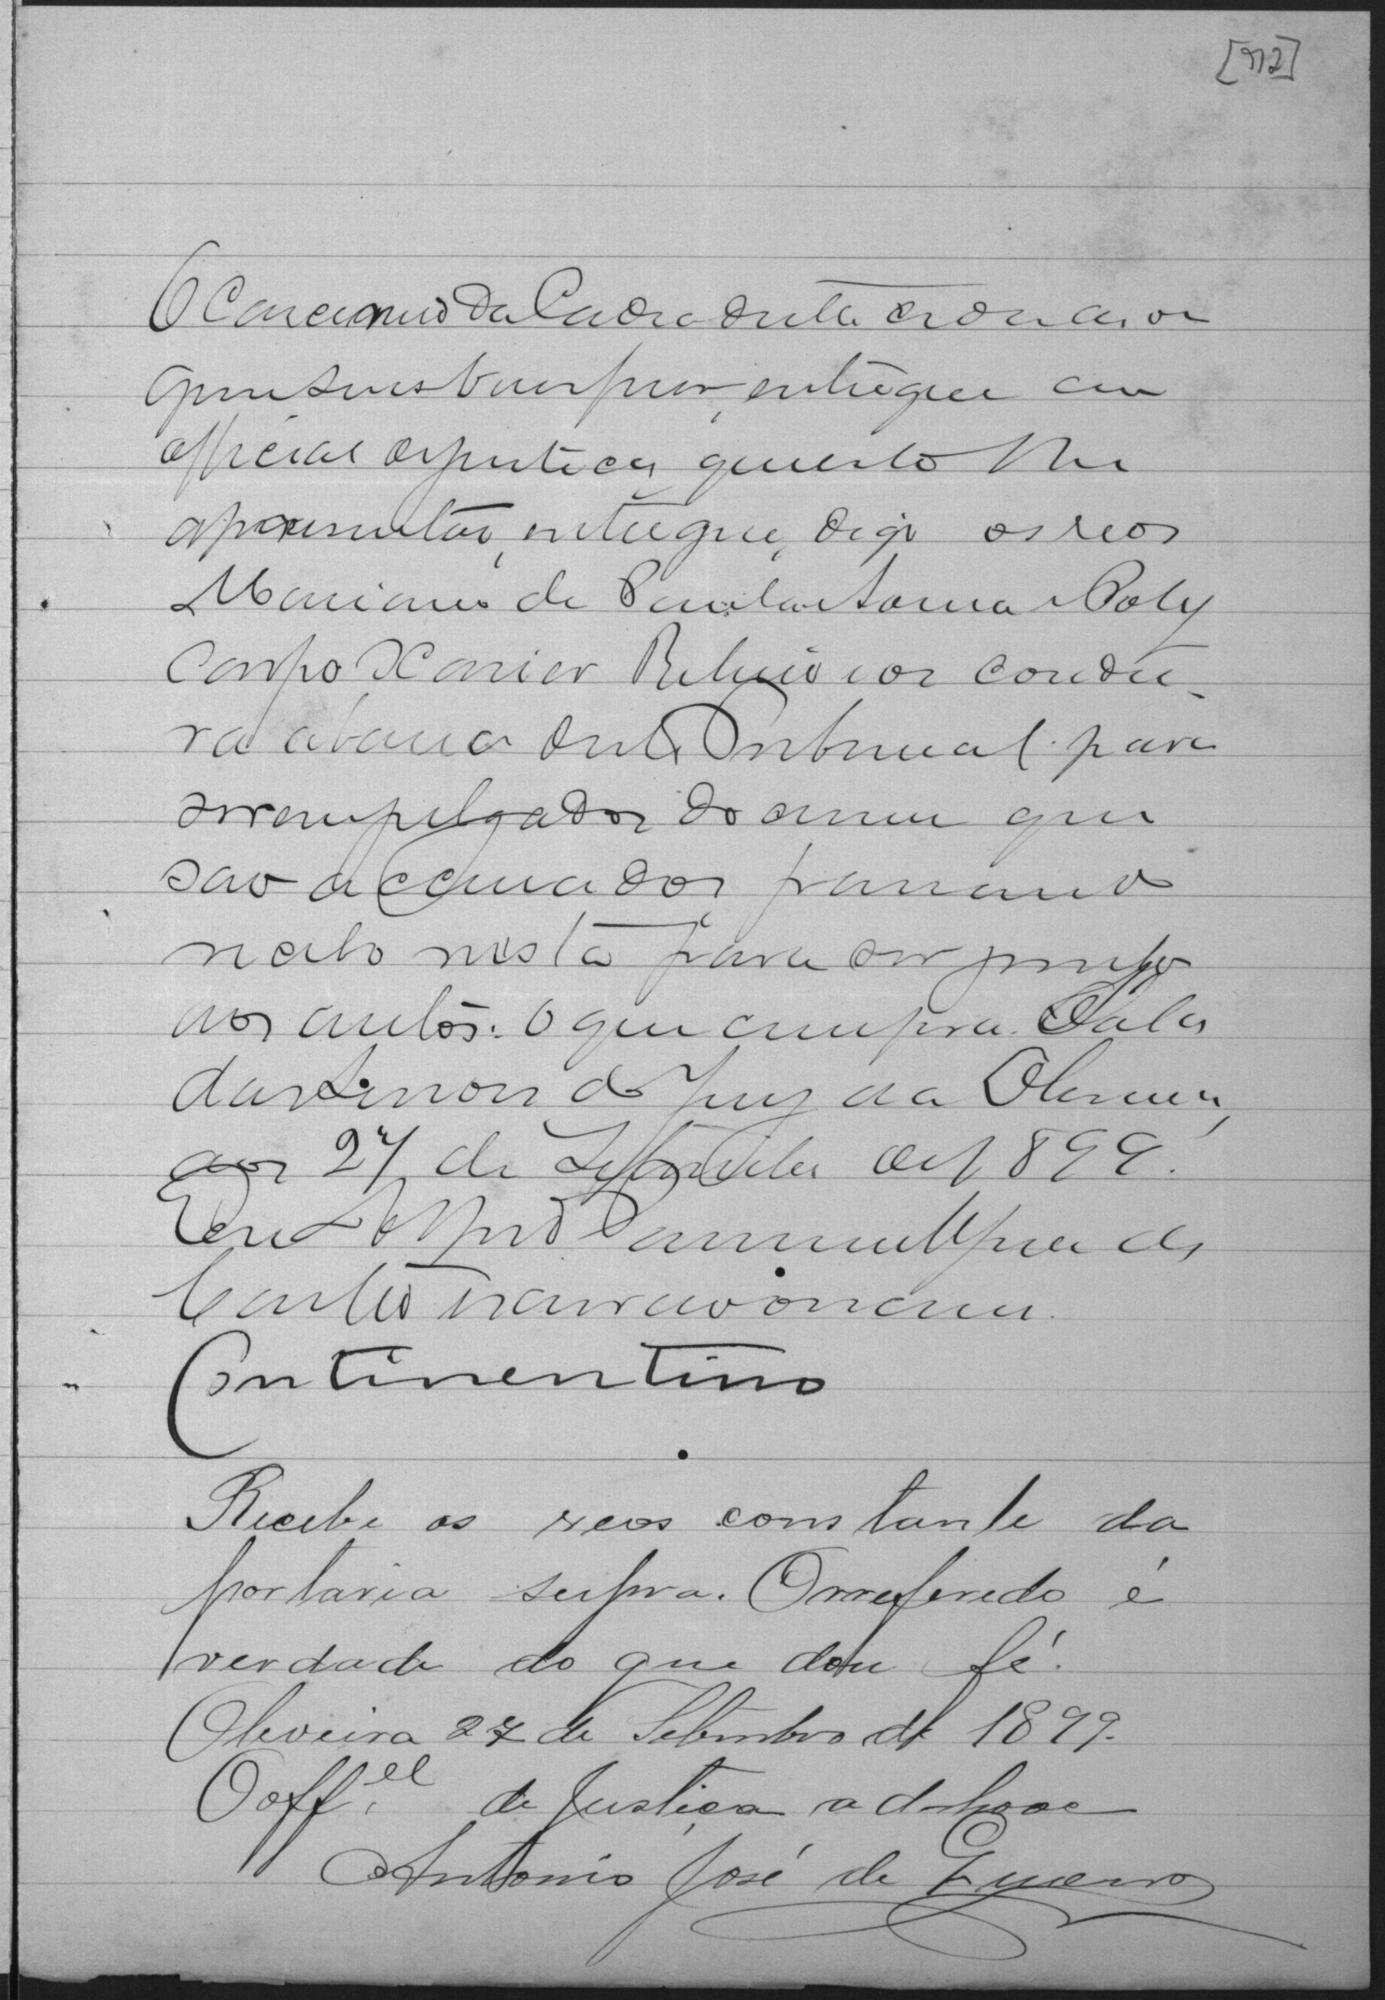 [92]
O Carcereiro da Cadea desta cidade a
quem esta for entregue ao
official de justiça que esta lhe
apresentar, entregue, digo os reos
Mariano de e Poly
carpo Xavier Ribeiro e os condu-
za a barra deste Tribunal para
serem julgados do crime que
são accusados, passando
recibo nesta para ser junto
aos autos. O que cumpra. Sala
das Sessões do Jury da Oliveira,
aos 27 de Setembro de 1899.
Eu
escrivão o escrevi.
Continentino
Recebe os reos constante da
portaria supra. O referedo é
verdade do que dou fé.
Oliveira 27 de Setembro de 1899.
O off.el de Justiça ad-hoc
Antonio José de